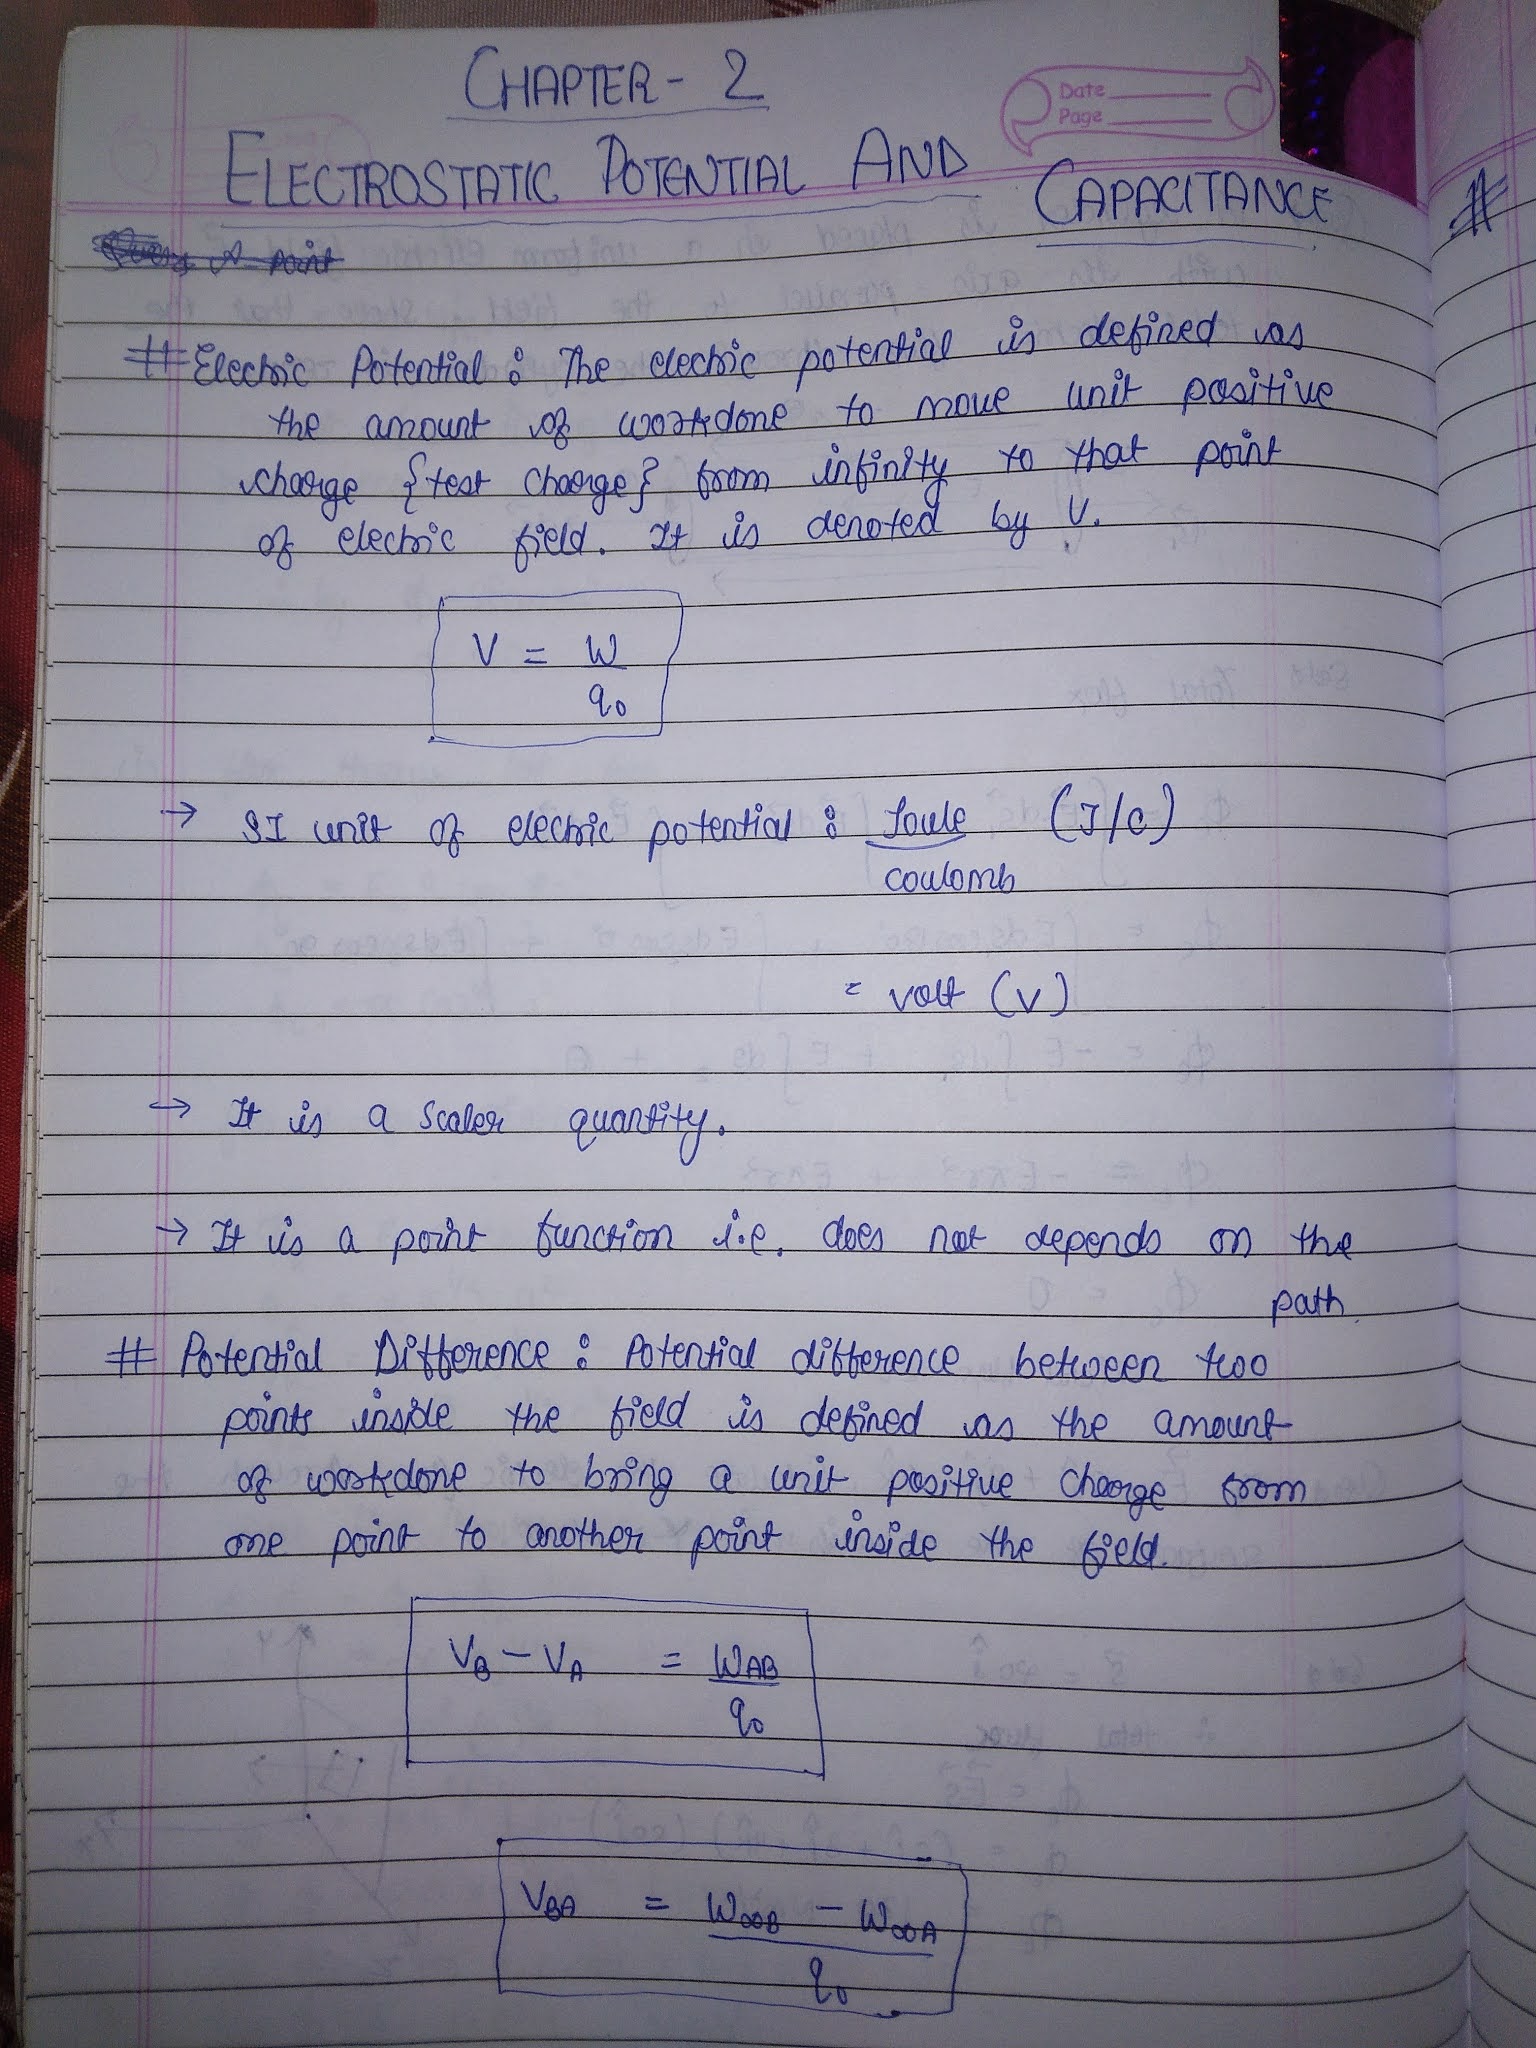 CHAPTER - 2
Date
Page
ELECTROSTATIC POTENTIAL AND CAPACITANCE
point
#
# Electric Potential : The electric potential is defined as
the amount of workdone to move unit positive
charge {test charge} from infinity to that point
of electric field. It is denoted by V.
V = W
q₀
→ SI unit of electric potential : Joule (J/C)
coulomb
= volt (V)
→ It is a scaler quantity.
→ It is a point function i.e. does not depends on the
path.
# Potential Difference : Potential difference between two
points inside the field is defined as the amount
of workdone to bring a unit positive charge from
one point to another point inside the field.
V_B - V_A = W_AB
q₀
V_BA = W_∞B - W_∞A
q₀